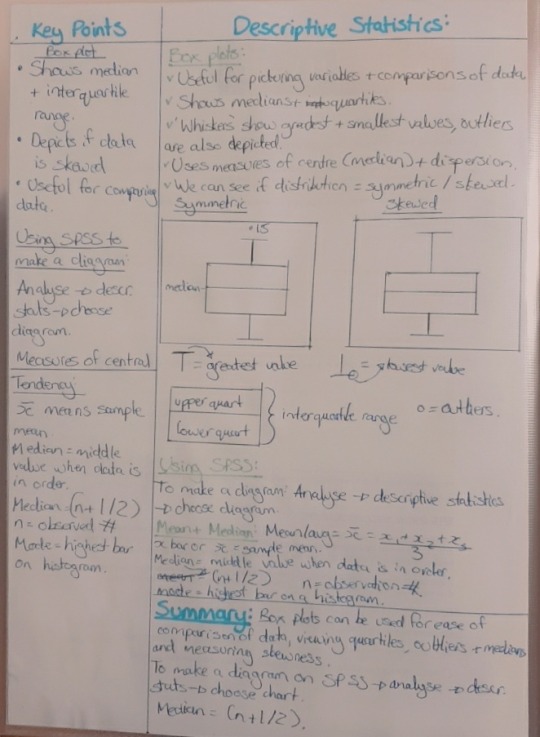 Key Points
Box plot
• Shows median
+ interquartile
range.
• Depicts if data
is skewed
• Useful for comparing
data.
Using SPSS to
make a diagram:
Analyse → descr.
stats → choose
diagram.
Measures of central
Tendency:
x̄ means sample
mean
Median = middle
value when data is
in order.
Median = (n+1/2)
n = observed #
Mode = highest bar
on histogram.
Descriptive Statistics:
Box plots:
✓ Useful for picturing variables + comparisons of data
✓ Shows medians + quartiles.
✓ 'Whiskers' show greatest + smallest values, outliers
are also depicted.
✓ Uses measures of centre (median) + dispersion.
✓ We can see if distribution = symmetric / skewed.
Symmetric
Skewed
•15
median
= greatest value
= lowest value
upper quart
lower quart
interquartile range
o = outliers.
Using SPSS:
To make a diagram: Analyse → descriptive statistics
→ choose diagram.
Mean + Median: Mean/avg = x̄ = x₁ + x₂ + x₃ / 3
x bar or x̄ = sample mean.
Median = middle value when data is in order.
= (n+1/2) n = observation #.
mode = highest bar on a histogram.
Summary: Box plots can be used for ease of
comparison of data, viewing quartiles, outliers + medians
and measuring skewness.
To make a diagram on SPSS → analyse → descr.
stats → choose chart.
Median = (n+1/2).